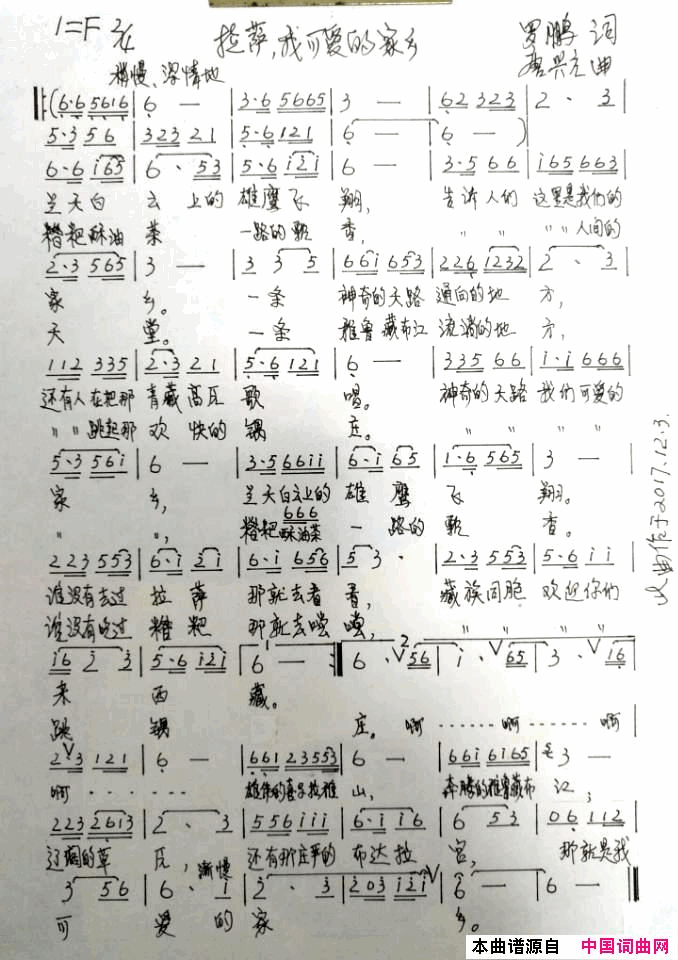 1=F 2/4 拉萨,我可爱的家乡 罗鹏 词
稍慢、深情地 唐兴元 曲
‖:(6·6 5616 | 6 — | 3·6 5665 | 3 — | 62 323 | 2 · 3 |
5·3 56 | 323 21 | 5·6 121 | 6 — | 6 — ) |
6·6 i65 | 6 · 53 | 5·6 i2i | 6 — | 3·5 66 | i65 663 |
兰天白 云上的 雄鹰飞 翔, 告诉人们 这里是我们的
糌粑酥油 茶 一路的歌 香, 〃 〃 〃〃人间的
2·3 565 | 3 — | 3 3 5 | 66i 653 | 226 1232 | 2 · 3 |
家 乡。 一条 神奇的天路 通向的地 方,
天 堂。 一条 雅鲁藏布江 流淌的地 方,
112 335 | 2·3 21 | 5·6 121 | 6 — | 335 66 | i·i 666 |
还有人在把那 青藏高瓦 歌 唱。 神奇的天路 我们可爱的
〃〃跳起那 欢快的锅 庄。 〃 〃 〃 〃
5·3 56i | 6 — | 3·5 66ii | 6·i 65 | 1·6 565 | 3 — |
家 乡, 兰天白云上的 雄鹰 飞 翔。
666
〃 〃, 糌粑酥油茶 一路的 歌 香。
223 553 | 6·i 2i | 6·i 656 | 5 3 · | 2·3 553 | 5·6 ii |
谁没有去过 拉萨 那就去看 看, 藏族同胞 欢迎你们
谁没有吃过 糌粑 那就去嚐 嚐, 〃 〃 〃 〃
i6 2 3 | 5·6 i2i | 6 — :‖ 6 · V56 | i · V65 | 3 · Vi6 |
来 西 藏。
跳 锅 庄。啊 ······ 啊 ······ 啊
2V3 121 | 6 — | 661 23553 | 6 — | 66i 6i65 | 3 — |
啊 · · · · · 雄伟的喜马拉雅 山, 奔腾的雅鲁藏布 江,
223 2613 | 2 · 3 | 556 iii | 6·i i6 | 6 53 | 06 112 |
辽阔的草 瓦, 渐慢 还有那庄严的 布达拉 宫, 那就是我
3 56 | 6 · i | 2 · 3 | 203 i2i V | 6 — | 6 — ‖
可 爱的家 乡。
从曲作于2017.12.3.
本曲谱源自 中国词曲网